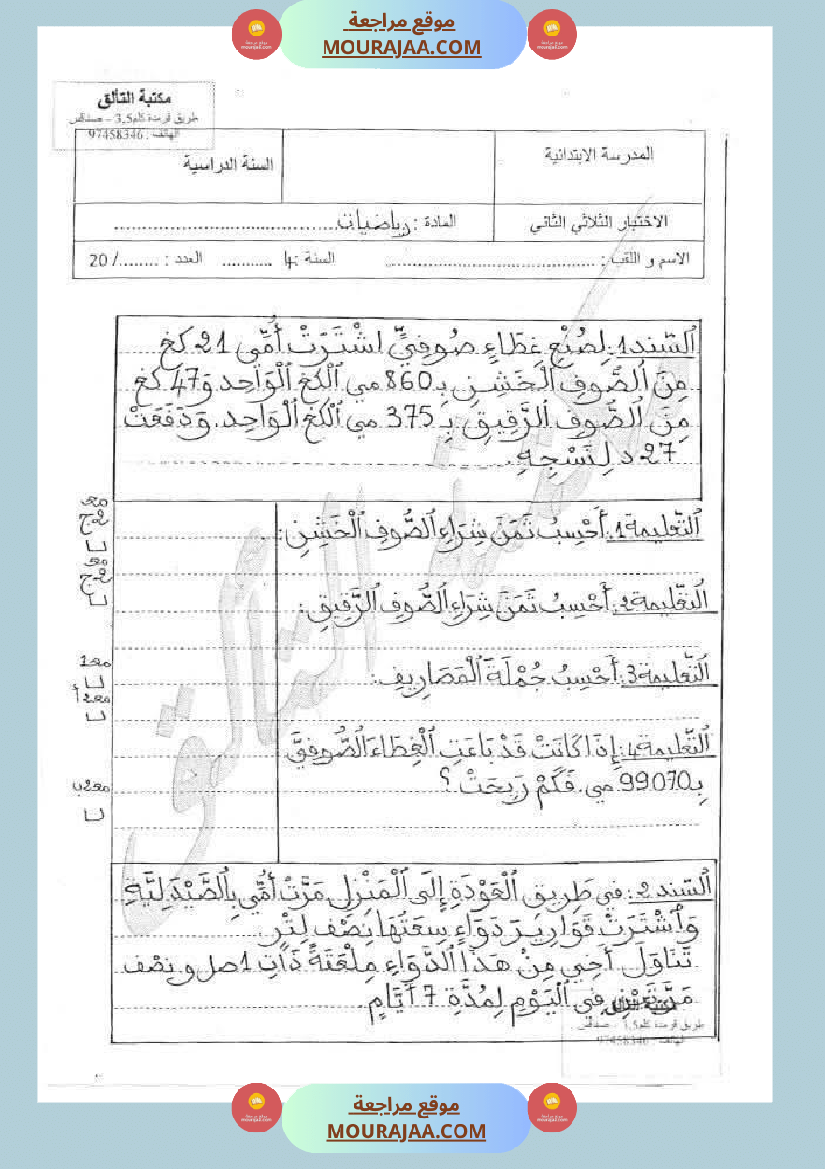 موقع مراجعة
MOURAJAA.COM
مكتبة التألق
طريق قرمدة كلم3,5 - صفاقس
الهاتف : 97458346
المدرسة الابتدائية
السنة الدراسية
الاختبار الثلاثي الثاني
المادة : رياضيات
الاسم و اللقب :
السنة : 4
العدد : ......../ 20
اَلسّند1: لِصُنْعِ غِطَاءٍ صُوفِيٍّ اشْتَرَتْ أُمِّي 21 كغ
مِنَ الصُّوفِ الْخَشِنِ بِـ860 مي اَلْكغ اَلْوَاحِد وَ47 كغ
مِنَ الصُّوفِ الرَّقِيقِ بِـ 375 مي اَلْكغ اَلْوَاحِد. وَدَفَعَتْ
27 د لِنَسْجِهِ.
اَلتّعْليمة1: أَحْسِبُ ثَمَنَ شِرَاءِ الصُّوفِ الْخَشِنِ:
اَلتّعْليمة2: أَحْسِبُ ثَمَنَ شِرَاءِ الصُّوفِ الرَّقِيقِ:
اَلتّعْليمة3: أَحْسِبُ جُمْلَةَ الْمَصَارِيفِ:
مع1
اَلتّعْليمة4: إِذَا كَانَتْ قَدْ بَاعَتِ الْغِطَاءَ الصُّوفِيَّ
بِـ99070 مي. فَكَمْ رَبِحَتْ ؟
اَلسّند2: في طَرِيقِ الْعَوْدَةِ إِلَى الْمَنْزِلِ مَرَّتْ أُمِّي بِالصَّيْدَلِيَّةِ
وَاشْتَرَتْ قَوَارِيرَ دَوَاءٍ سِعَتُهَا نِصْف لِتْر.
تَنَاوَلَ أَخِي مِنْ هَذَا الدَّوَاءِ مِلْعَقَةً ذَاتِ 1صل و نِصْف
مَرَّتَيْنِ فِي الْيَوْمِ لِمُدَّةِ 7 أَيَّامٍ.
طريق قرمدة كلم3,5 - صفاقس
الهاتف : 97458346
موقع مراجعة
MOURAJAA.COM